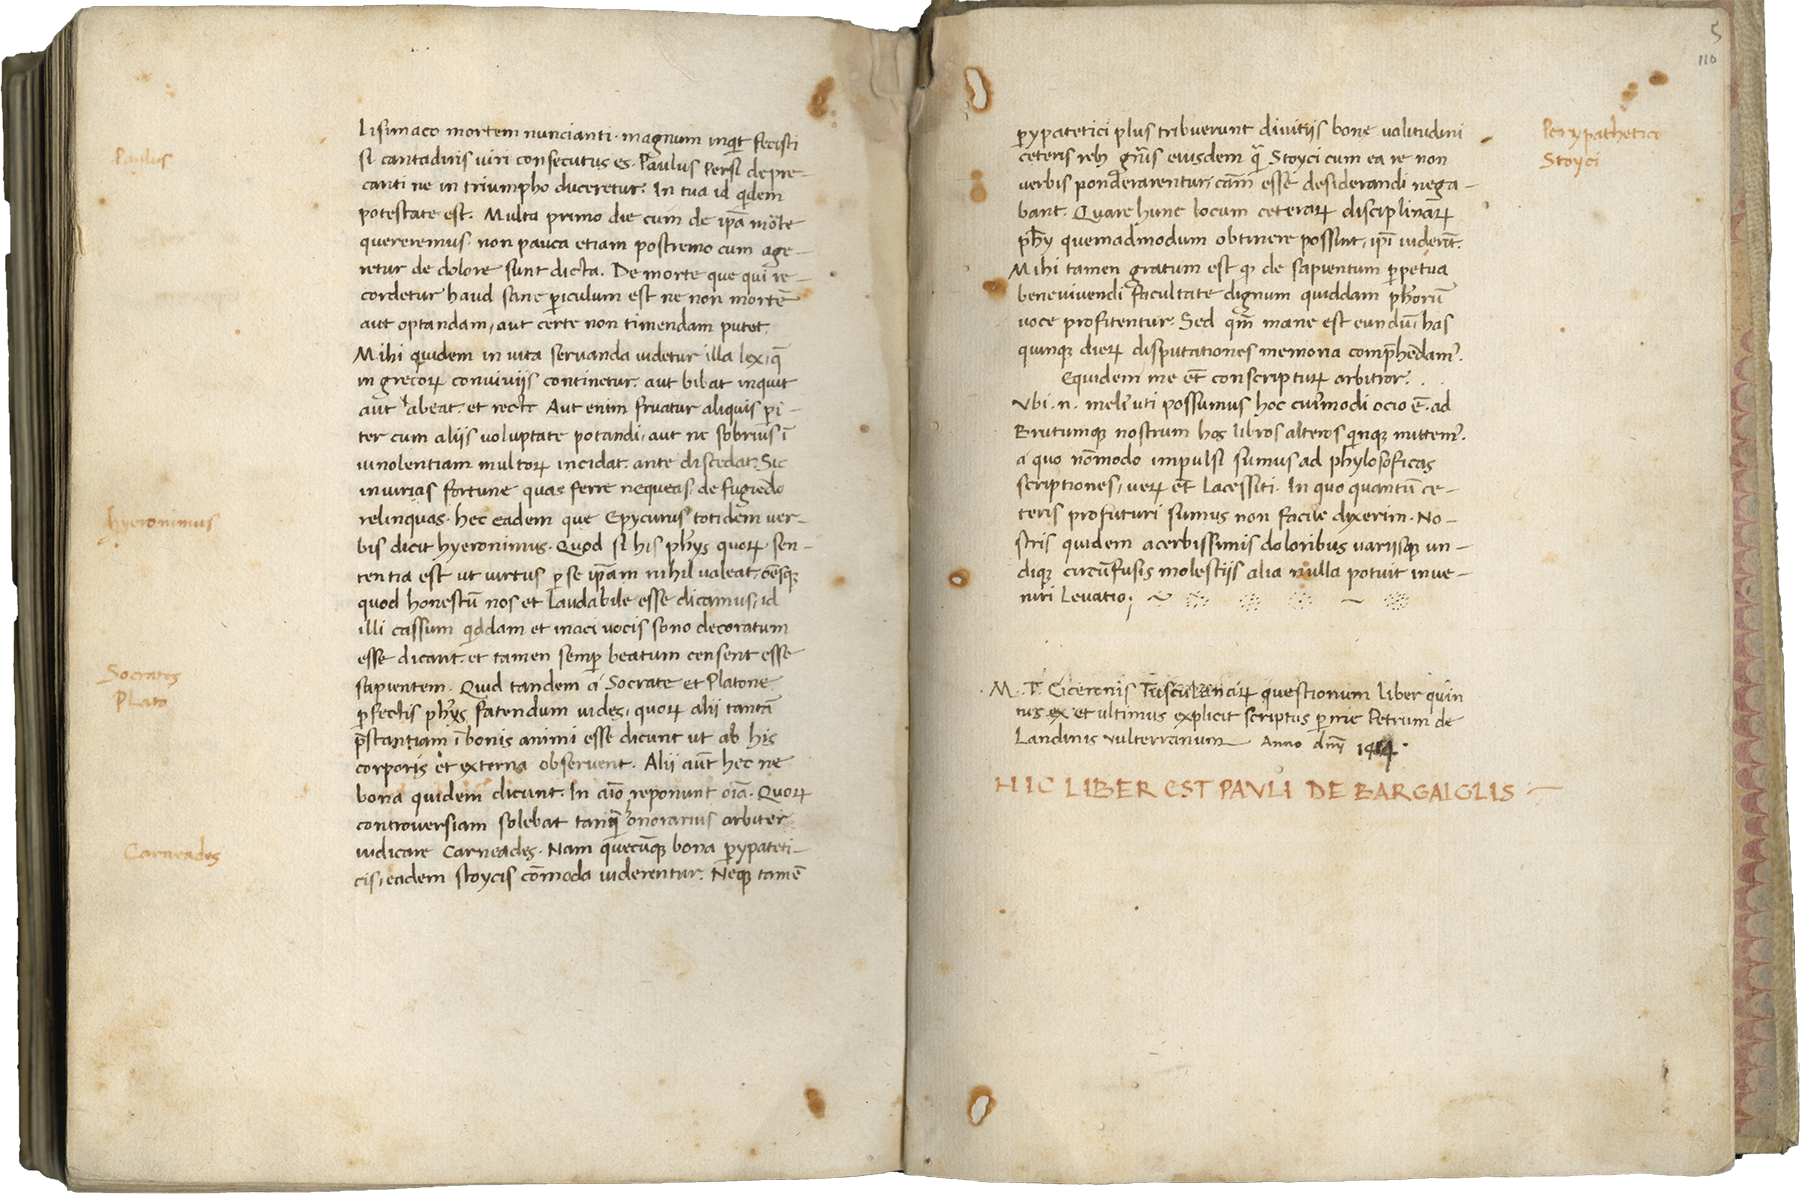 Paulus
hyeronimus
Socrates
Plato
Carneades
Lisimaco mortem nuncianti. magnum inqt fecisti
si cantaridis uiri consecutus es. Paulus Persi depre-
canti ne in triumpho duceretur. In tua id qdem
potestate est. Multa primo die cum de ipā mōte
quereremus. non pauca etiam postremo cum age-
retur de dolore sunt dicta. De morte que qui re-
cordetur haud sane ꝑiculum est ne non mortē
aut optandam, aut certe non timendam putet.
Mihi quidem in uita seruanda uidetur illa lex, q̄
in grecoꝝ conuiuijs continetur. aut bibat inquit
aut abeat. et recte Aut enim fruatur aliquis pi-
ter cum aliis uoluptate potandi, aut ne sobrius ī
uinolentiam multoꝝ incidat. ante discedat. Sic
iniurias fortune quas ferre nequeas, de fugiēdo
relinquas. hec eadem que Epycurus totidem uer-
bis dicit hyeronimus. Quod si his phy̅s quoꝝ sen-
tentia est ut uirtus ꝑ se ipam nihil ualeat. oēsqꝫ
quod honestū nos et laudabile esse dicamus, id
illi cassum qddam et inaci uocis sono decoratum
esse dicant. et tamen semꝑ beatum censent esse
sapientem. Quid tandem a Socrate et Platone
ꝑfectis phy̅s fatendum uides, quoꝝ alii tantā
p̄stantiam ī bonis animi esse dicunt ut ab his
corporis et externa obseruent. Alii aūt hec ne
bona quidem dicunt. In aīo reponunt oīa. Quoꝝ
controuersiam solebat tanq̄ onorarius arbiter
iudicare Carneades. Nam quecūqꝫ bona ꝑypateti-
cis, eadem stoycis cōmoda uiderentur. Neqꝫ tamē
5
110
Perypathetici
Stoyci
ꝑypatetici plus tribuerunt diuitijs bone ualitudini
ceteris rebꝫ gn̄is eiusdem q̄ Stoyci cum ea re non
uerbis ponderarentur, cām esse desiderandi nega-
bant. Quare hunc locum ceteraꝝ disciplinaꝝ
phȳ quemadmodum obtinere possint, ipī uiderīt.
Mihi tamen gratum est qꝫ de sapientum ꝑpetua
beneuiuendi facultate dignum quiddam ph̄oꝝ
uoce profitentur. Sed qm̄ mane est eundū, has
quinqꝫ dieꝝ disputationes memoria comp̄hendam'.
Equidem me et̄ conscriptuꝝ arbitror.
Vbi. n. meli' uti possumus hoc cui'modi ocio ē. ad
Brutumqꝫ nostrum hos libros alteros qinqꝫ mittem'.
a quo nōmodo impulsi sumus ad phylosoficas
scriptiones, ueꝝ et̄ lacessiti. In quo quantū ce-
teris profuturi sumus non facile dixerim. No-
stris quidem acerbissimis doloribus uariisqꝫ un-
diqꝫ circūfusis molestijs alia nulla potuit inue-
niri leuatio;
M. T. Ciceronis Tusculanaꝝ questionum liber quin
tus ex et ultimus explicit scriptus ꝑ me Petrum de
Landinis uulterranum Anno dnȳ
HIC LIBER EST PAVLI DE BARGAIGLIS